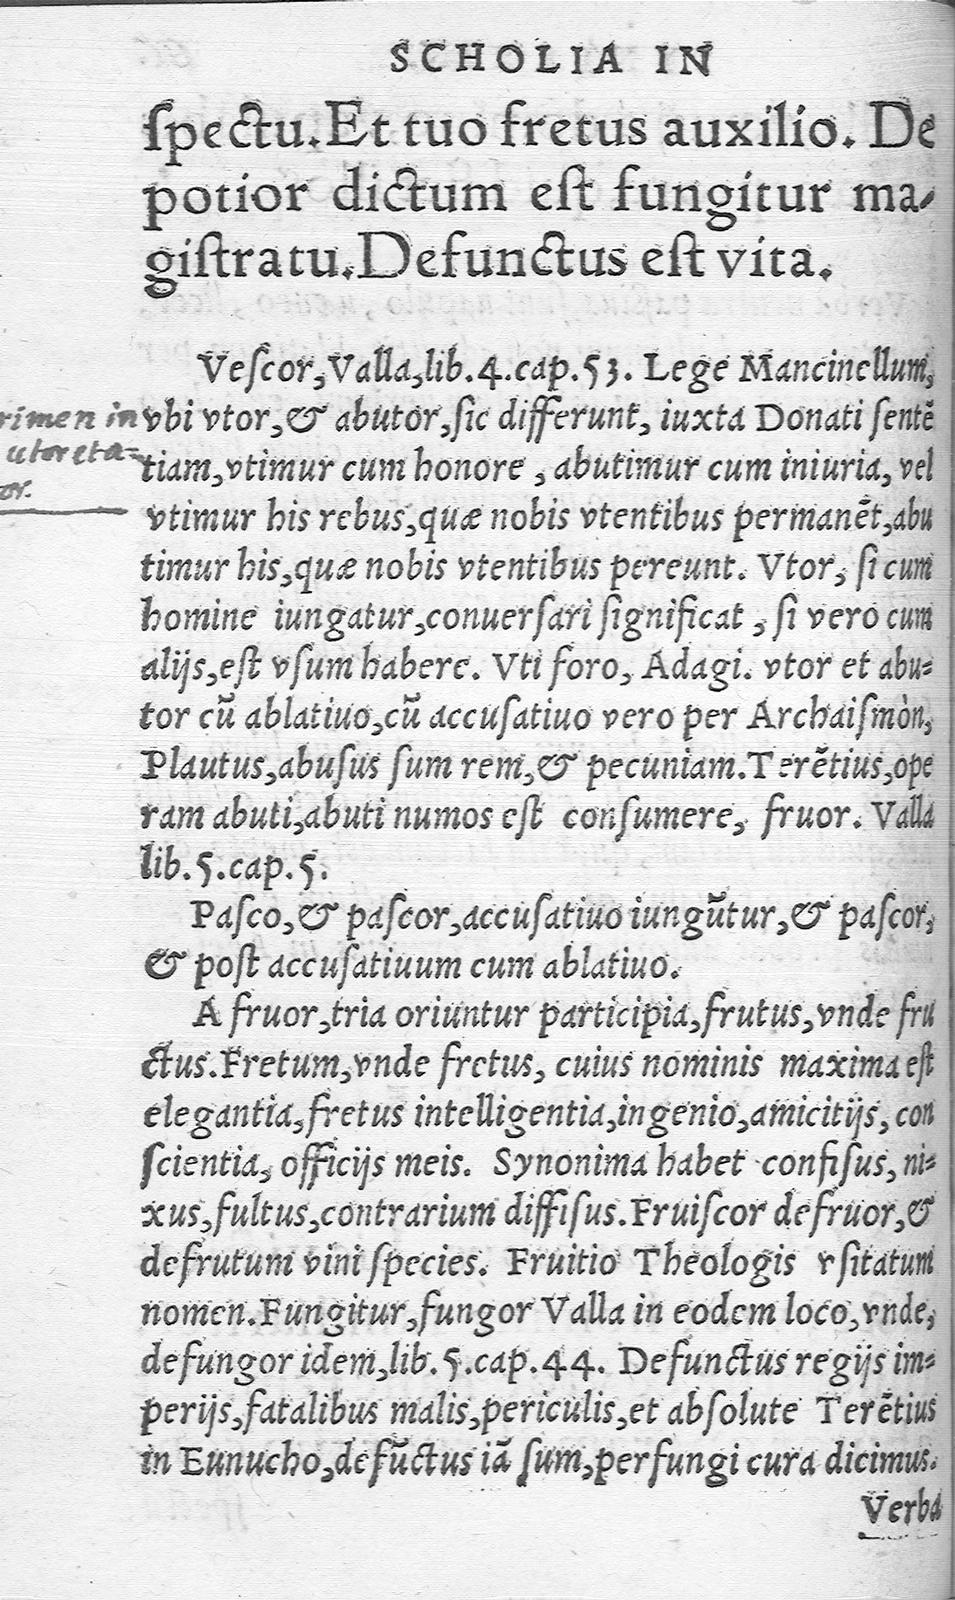 SCHOLIA IN
ſpectu. Et tuo fretus auxilio. De
potior dictum eſt fungitur ma-
giſtratu. Defunctus eſt vita.
Veſcor, Valla, lib. 4. cap. 53. Lege Mancinellum,
vbi vtor, & abutor, ſic differunt, iuxta Donati ſentē
tiam, vtimur cum honore, abutimur cum iniuria, vel
vtimur his rebus, quæ nobis vtentibus permanēt, abu
timur his, quæ nobis vtentibus pereunt. Vtor, ſi cum
homine iungatur, conuerſari ſignificat, ſi vero cum
alijs, eſt vſum habere. Vti foro, Adagi. vtor et abu-
tor cū ablatiuo, cū accuſatiuo vero per Archaiſmòn,
Plautus, abuſus ſum rem, & pecuniam. Terētius, ope
ram abuti, abuti numos eſt conſumere, fruor. Valla
lib. 5. cap. 5.
Paſco, & paſcor, accuſatiuo iungūtur, & paſcor,
& poſt accuſatiuum cum ablatiuo.
A fruor, tria oriuntur participia, frutus, vnde fru
ctus. Fretum, vnde fretus, cuius nominis maxima eſt
elegantia, fretus intelligentia, ingenio, amicitijs, con
ſcientia, officijs meis. Synonima habet confiſus, ni-
xus, fultus, contrarium diffiſus. Fruiſcor defruor, &
defrutum vini ſpecies. Fruitio Theologis vſitatum
nomen. Fungitur, fungor Valla in eodem loco, vnde,
defungor idem, lib. 5. cap. 44. Defunctus regijs im-
perijs, fatalibus malis, periculis, et abſolute Terētius
in Eunucho, defūctus iā ſum, perfungi cura dicimus.
Verba
rimen in
utor et a-
or.